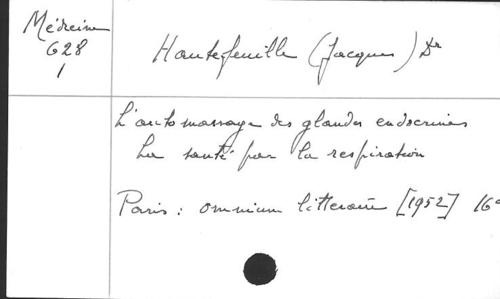 Médecine
628
1
Hautefeuille (Jacques) Dr
L'auto massage des glandes endocrines
La santé par la respiration
Paris : omnium litteraire [1952] 16°